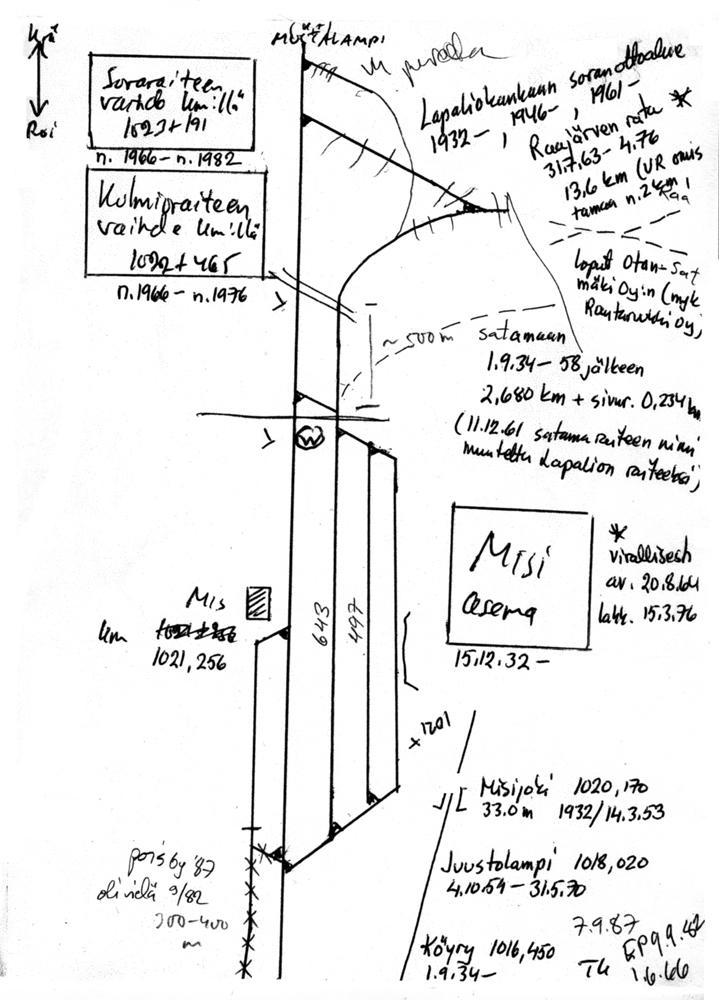 Kjä
Roi
MUSTALAMPI
Soraraiteen
vaihde km:llä
1023+191
n. 1966 – n. 1982
Kolmioraiteen
vaihde km:llä
1022+465
n. 1966 – n. 1976
Lapaliokankaan soranottoalue
1932– , 1946– , 1961–
Raajärven rata *
31.7.63– 4.76
13,6 km (VR omis
tamaa n. 2 km
loput Otan
mäki Oy:n (nyk
Rautaruukki Oy)
~500 m
satamaan
1.9.34 – 58 jälkeen
2,680 km + sivur. 0,234 km
(11.12.61 satamaraiteen nimi
muutettu Lapalion raiteeksi)
W
643
497
Mis
km
1021,256
Misi
asema
15.12.32 –
*
virallisesti
av. 20.8.64
lakk. 15.3.76
x 1201
Misijoki 1020,170
33.0 m 1932/14.3.53
Juustolampi 1018,020
4.10.54 – 31.5.70
Köyry 1016,450
1.9.34 –
pois by '87
oli vielä 9/82
300–400
m
7.9.87
1.6.66